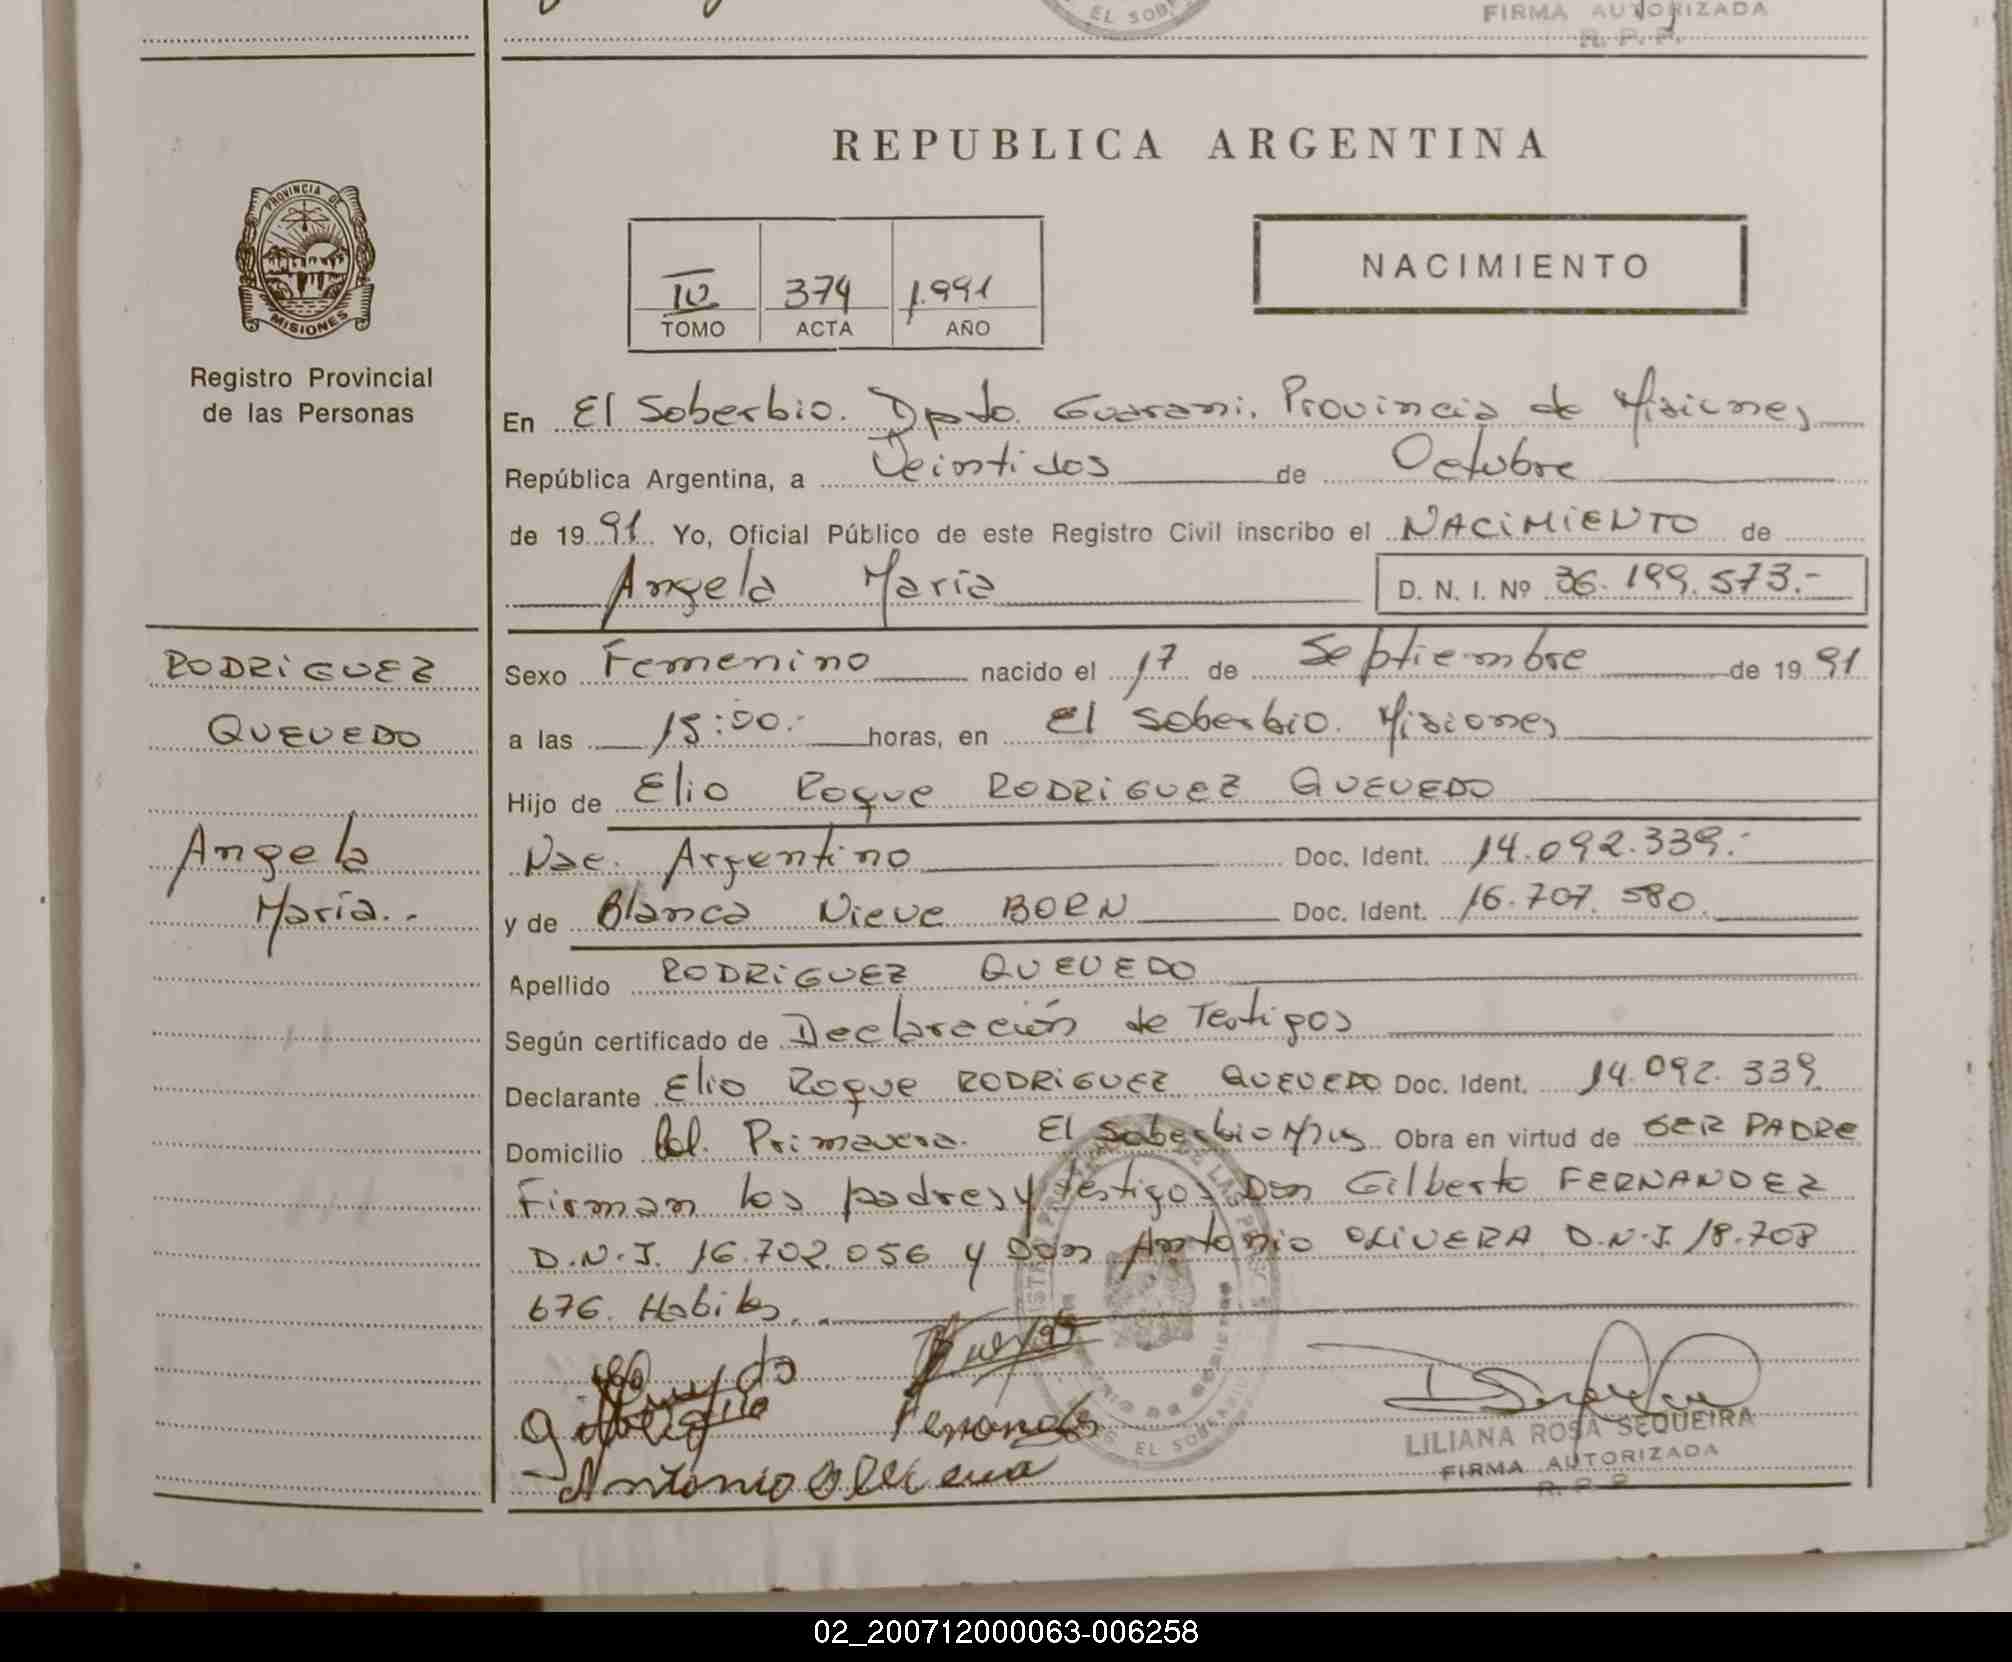 EL SOB
FIRMA AUTORIZADA
R. P. P.
REPUBLICA ARGENTINA
PROVINCIA DE
MISIONES
Registro Provincial
de las Personas
IV 374 1.991
TOMO ACTA AÑO
NACIMIENTO
En El Soberbio. Dpto. Guarani. Provincia de Misiones
República Argentina, a Veintidos de Octubre
de 1991 Yo, Oficial Público de este Registro Civil inscribo el NACIMIENTO de
Angela Maria D. N. I. Nº 36.199.573.-
RODRIGUEZ
QUEVEDO
Angela
María.-
Sexo Femenino nacido el 17 de Septiembre de 1991
a las 15:00.- horas, en El Soberbio. Misiones
Hijo de Elio Roque RODRIGUEZ QUEVEDO
Nac. Argentino Doc. Ident. 14.092.339.-
y de Blanca Nieve BORN Doc. Ident. 16.707.580.
Apellido RODRIGUEZ QUEVEDO
Según certificado de Declaración de Testigos
Declarante Elio Roque RODRIGUEZ QUEVEDO Doc. Ident. 14.092.339
Domicilio Col. Primavera. El Soberbio Mnes Obra en virtud de SER PADRE
Firman los padres y testigos Don Gilberto FERNANDEZ
D.N.I. 16.702.056 y Don Antonio OLIVERA D.N.I. 18.708
676. Habiles.
Fernandes
Antonio Olivera
EL SOBERBIO
LILIANA ROSA SEQUEIRA
FIRMA AUTORIZADA
R. P. P.
02_200712000063-006258